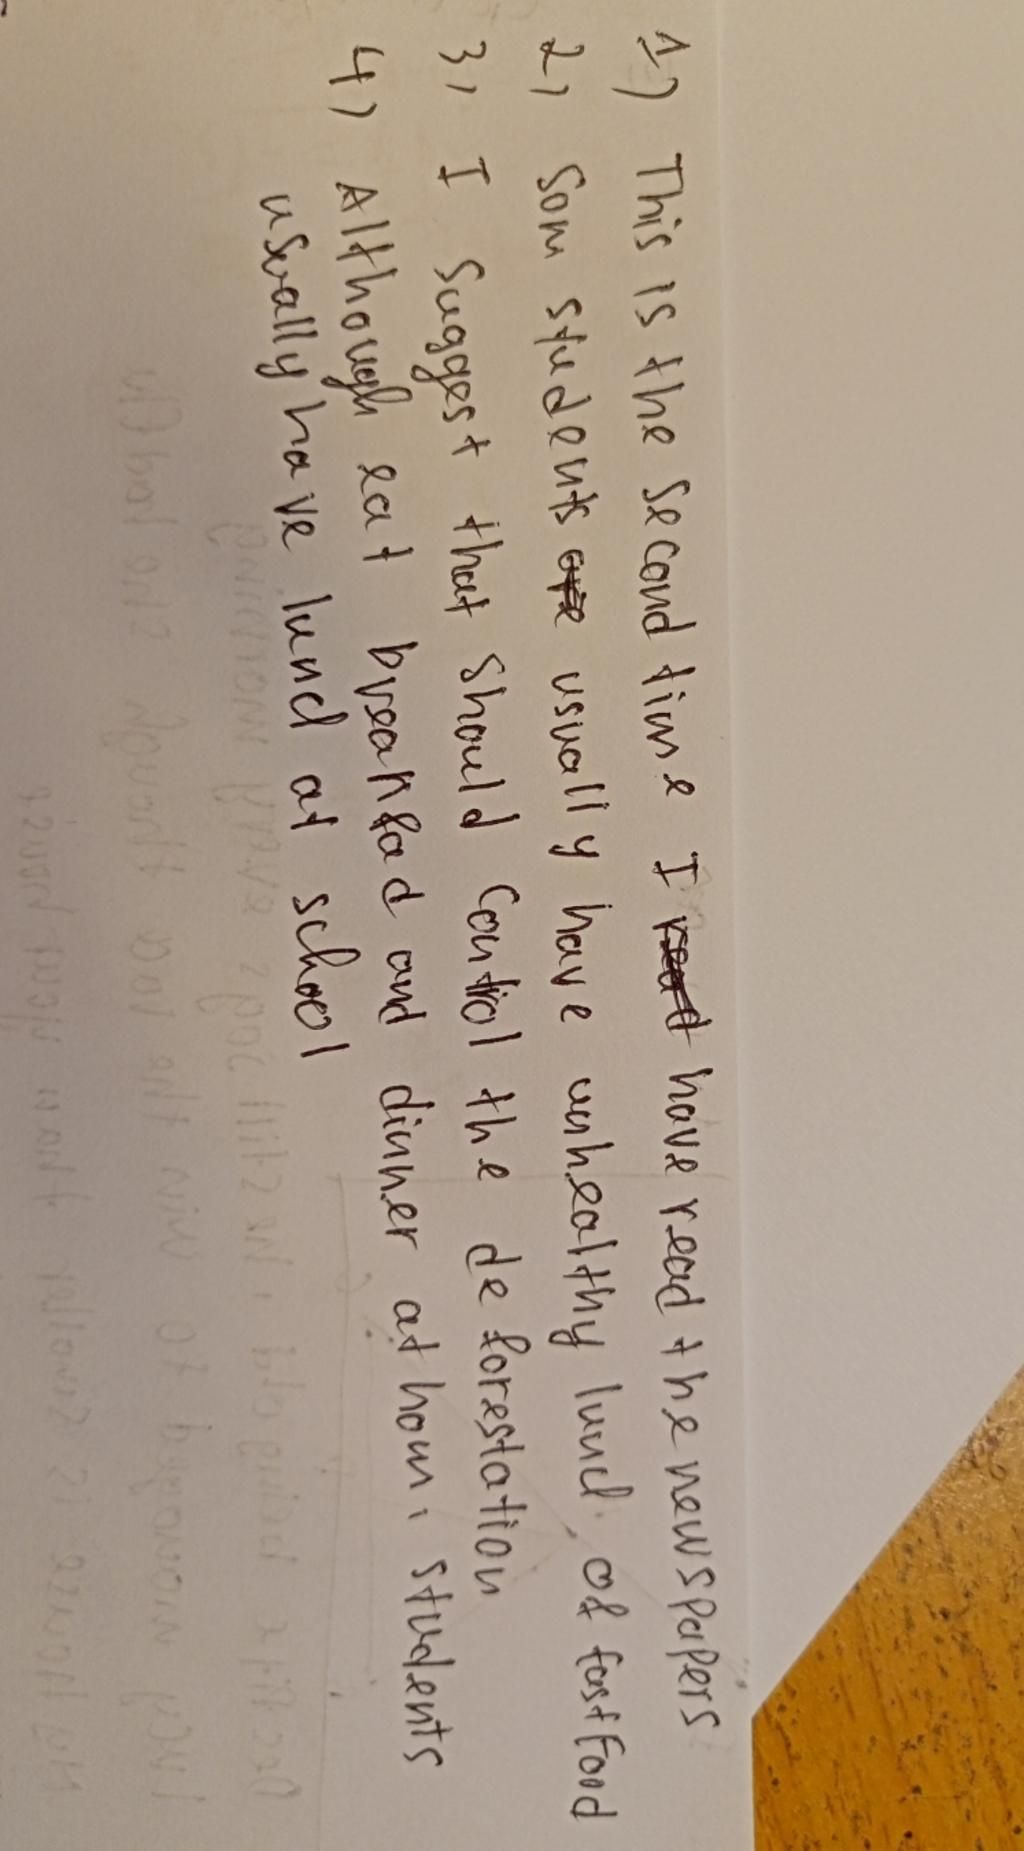 1) This is the second time I have read the newspapers
2) Som students usually have unhealthy lund of fast Food
3) I suggest that should control the deforestation
4) Although eat breakfad and dinner at hom, students
usually have lund at school